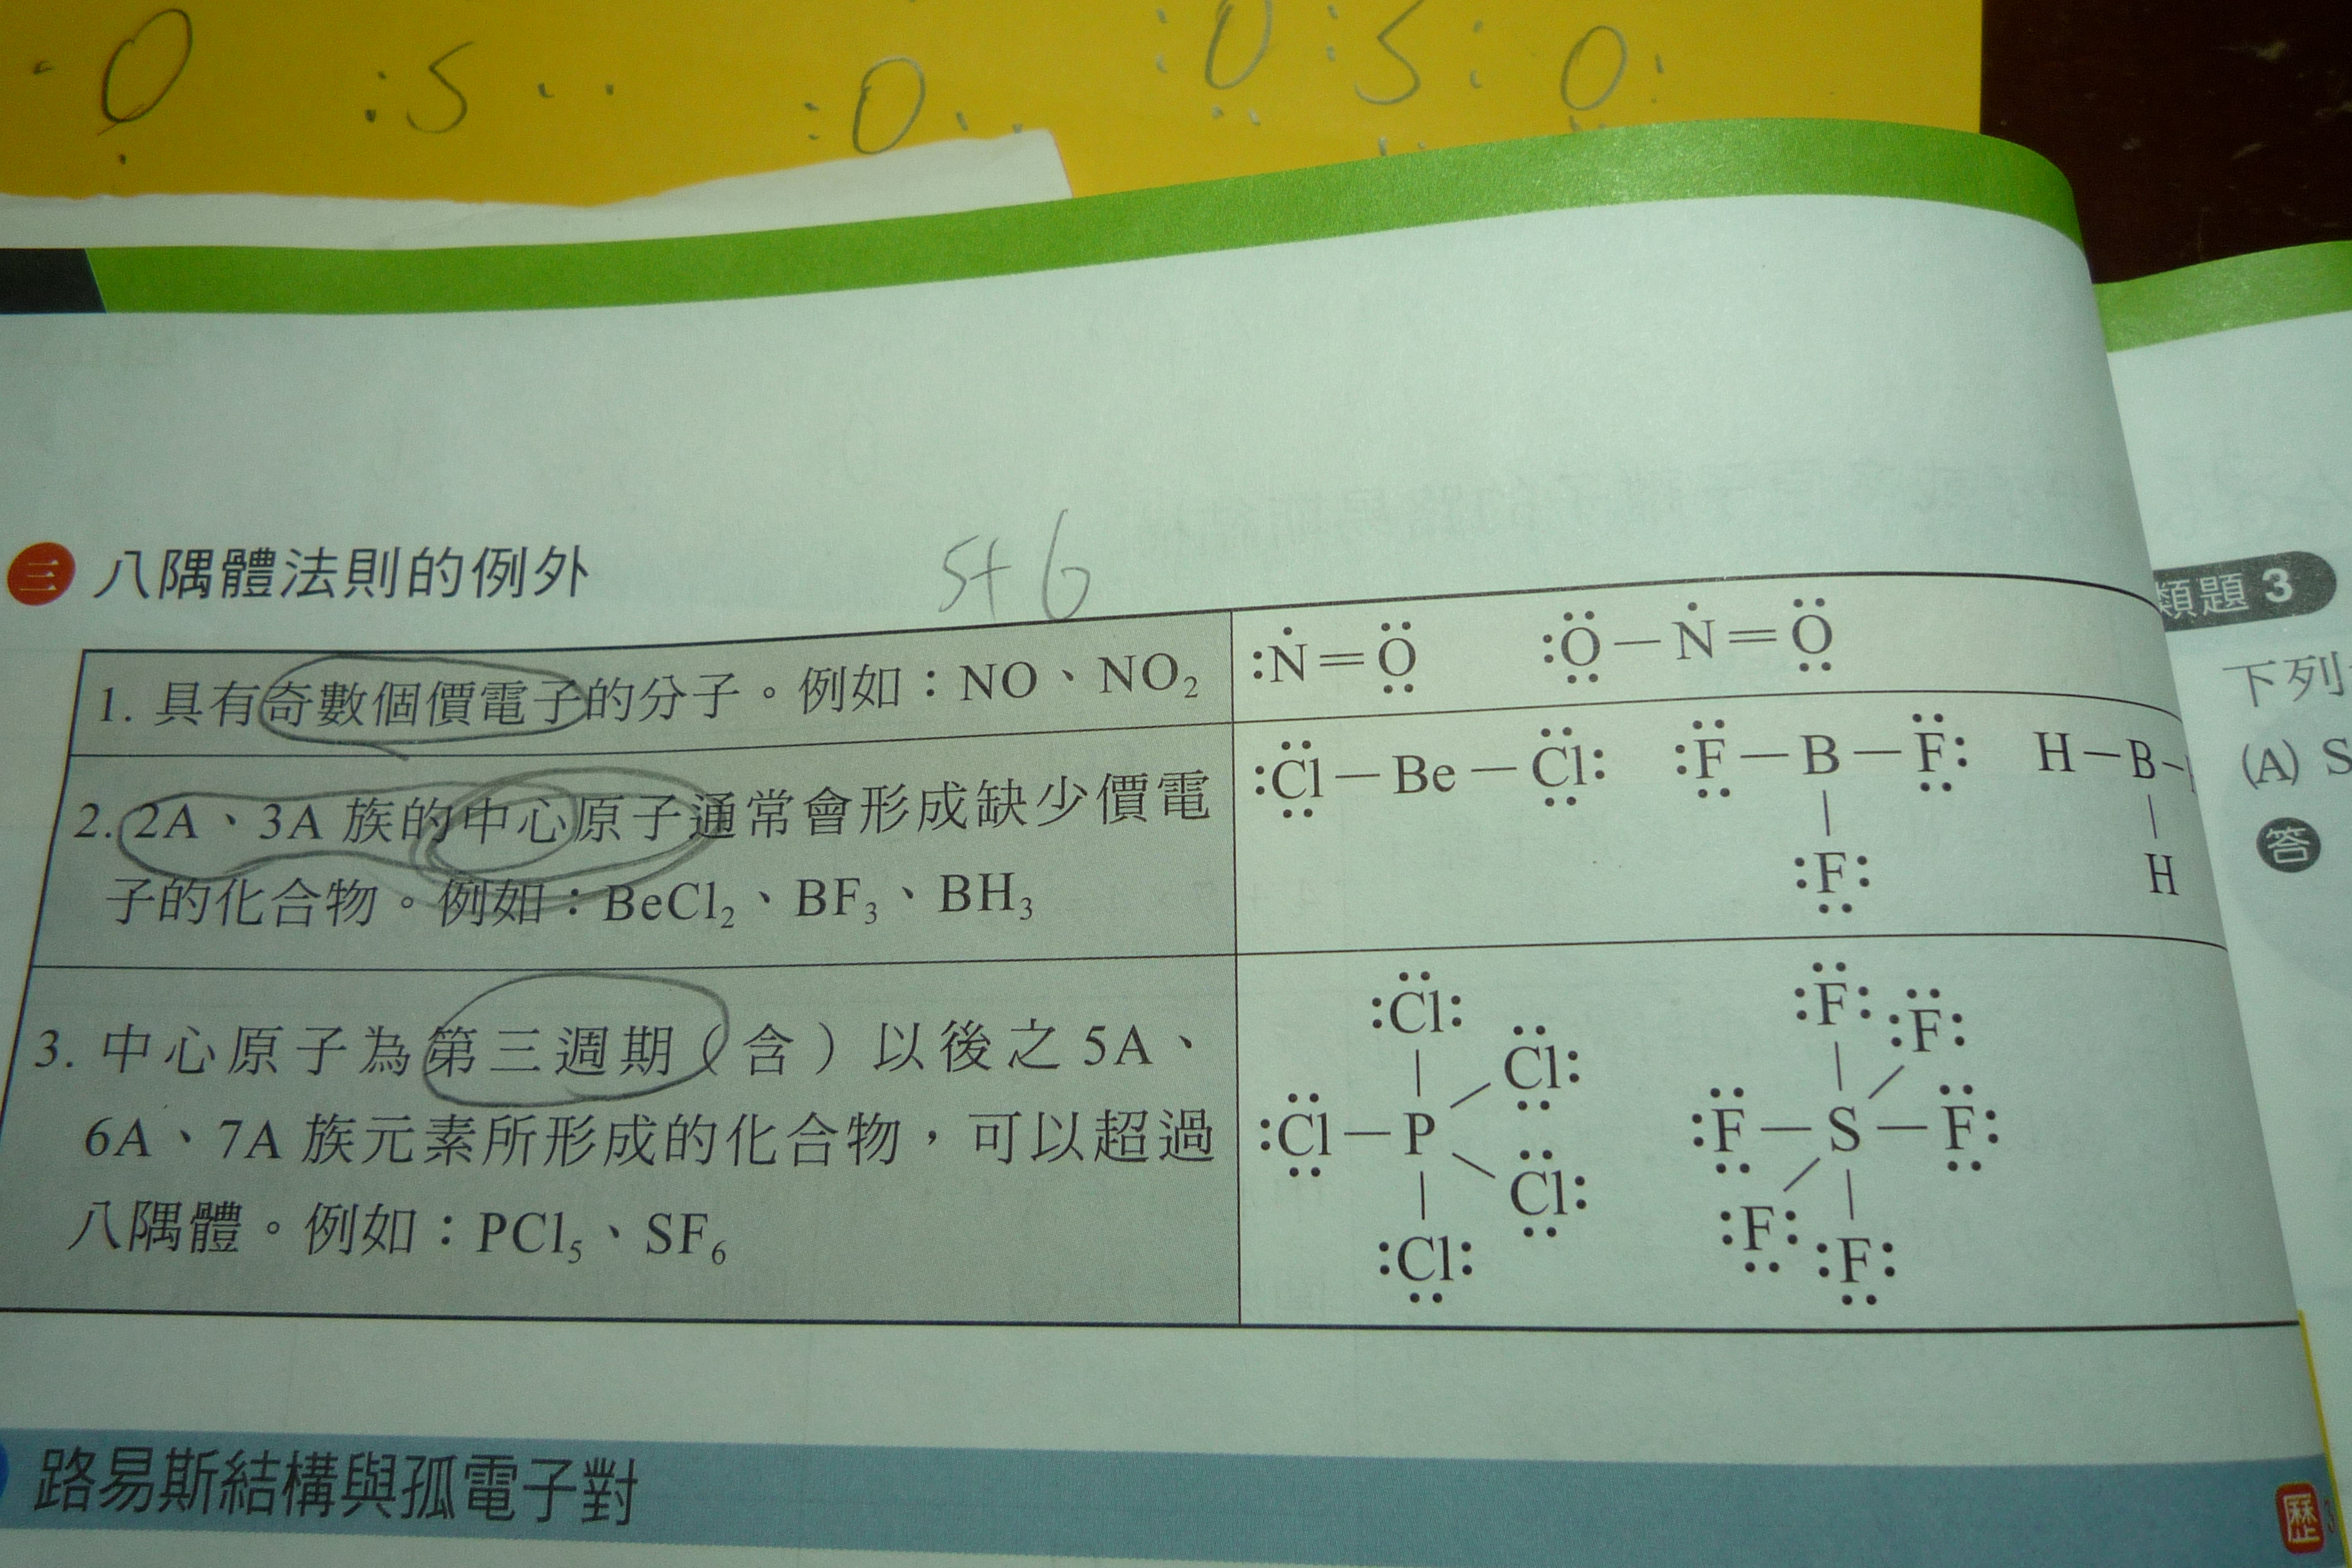 O :S·· :O·· :O:S:O:
三 八隅體法則的例外
5+6
1. 具有奇數個價電子的分子。例如：NO、NO₂
:N=O :O－N=O
2. 2A、3A 族的中心原子通常會形成缺少價電
子的化合物。例如：BeCl₂、BF₃、BH₃
:Cl－Be－Cl: :F－B－F: H－B－
:F: H
3. 中心原子為第三週期（含）以後之 5A、
6A、7A 族元素所形成的化合物，可以超過
八隅體。例如：PCl₅、SF₆
:Cl: :F: :F:
Cl:
:Cl－P :F－S－F:
Cl:
:Cl: :F: :F:
路易斯結構與孤電子對
類題 3
下列
(A) S
答
歷